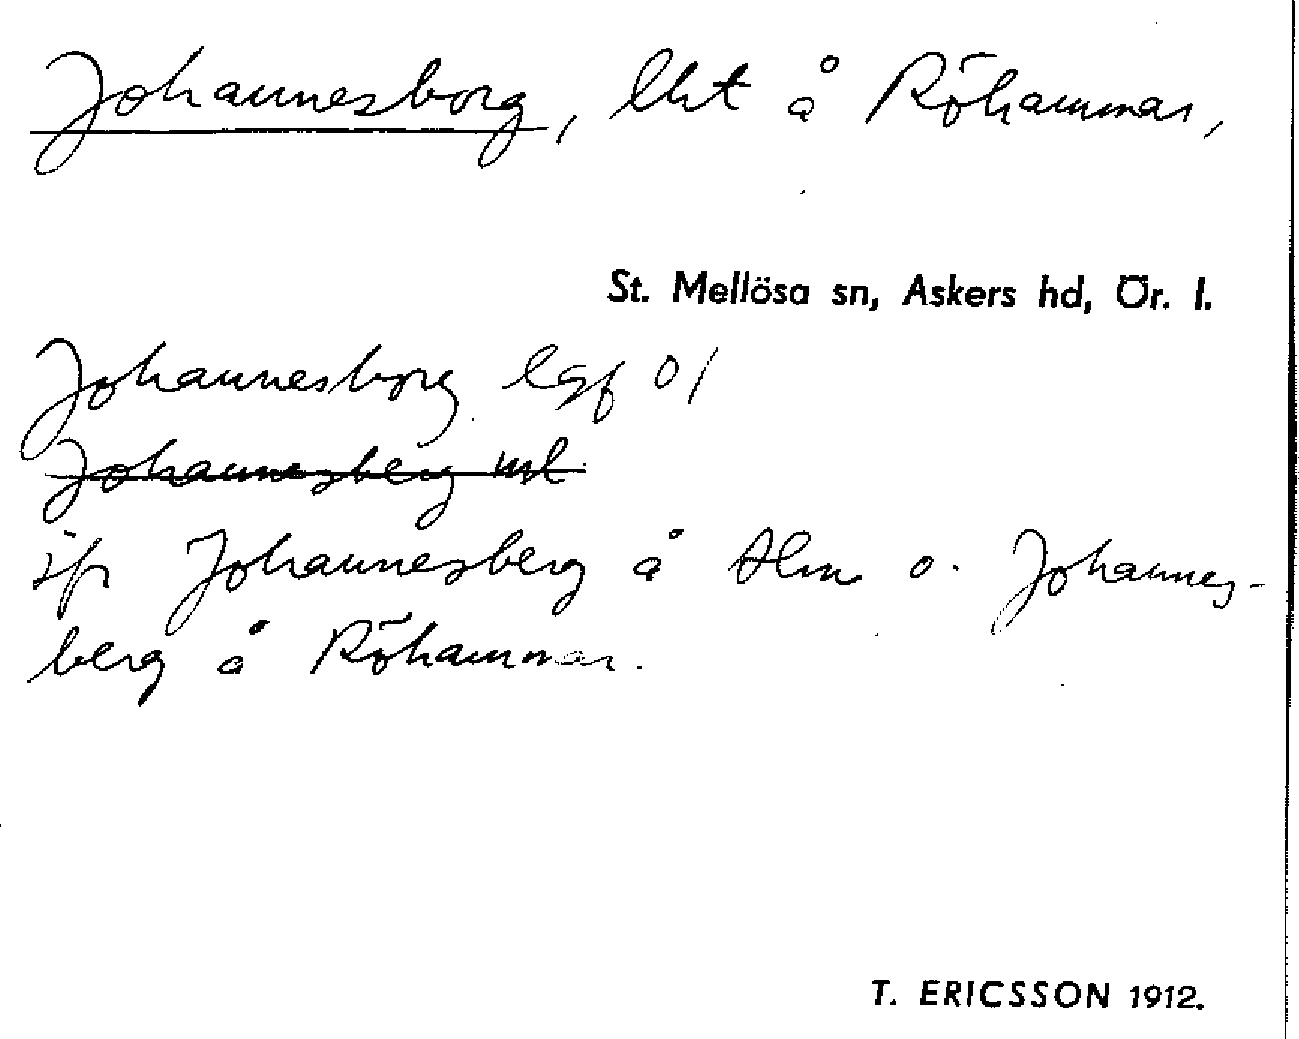 Johannesborg, lht å Röhammar,
St. Mellösa sn, Askers hd, Ör. l.
Johannesborg lgf 01
Johannesberg ml
jfr Johannesberg å Alm o. Johannes-
berg å Röhammar.
T. ERICSSON 1912.